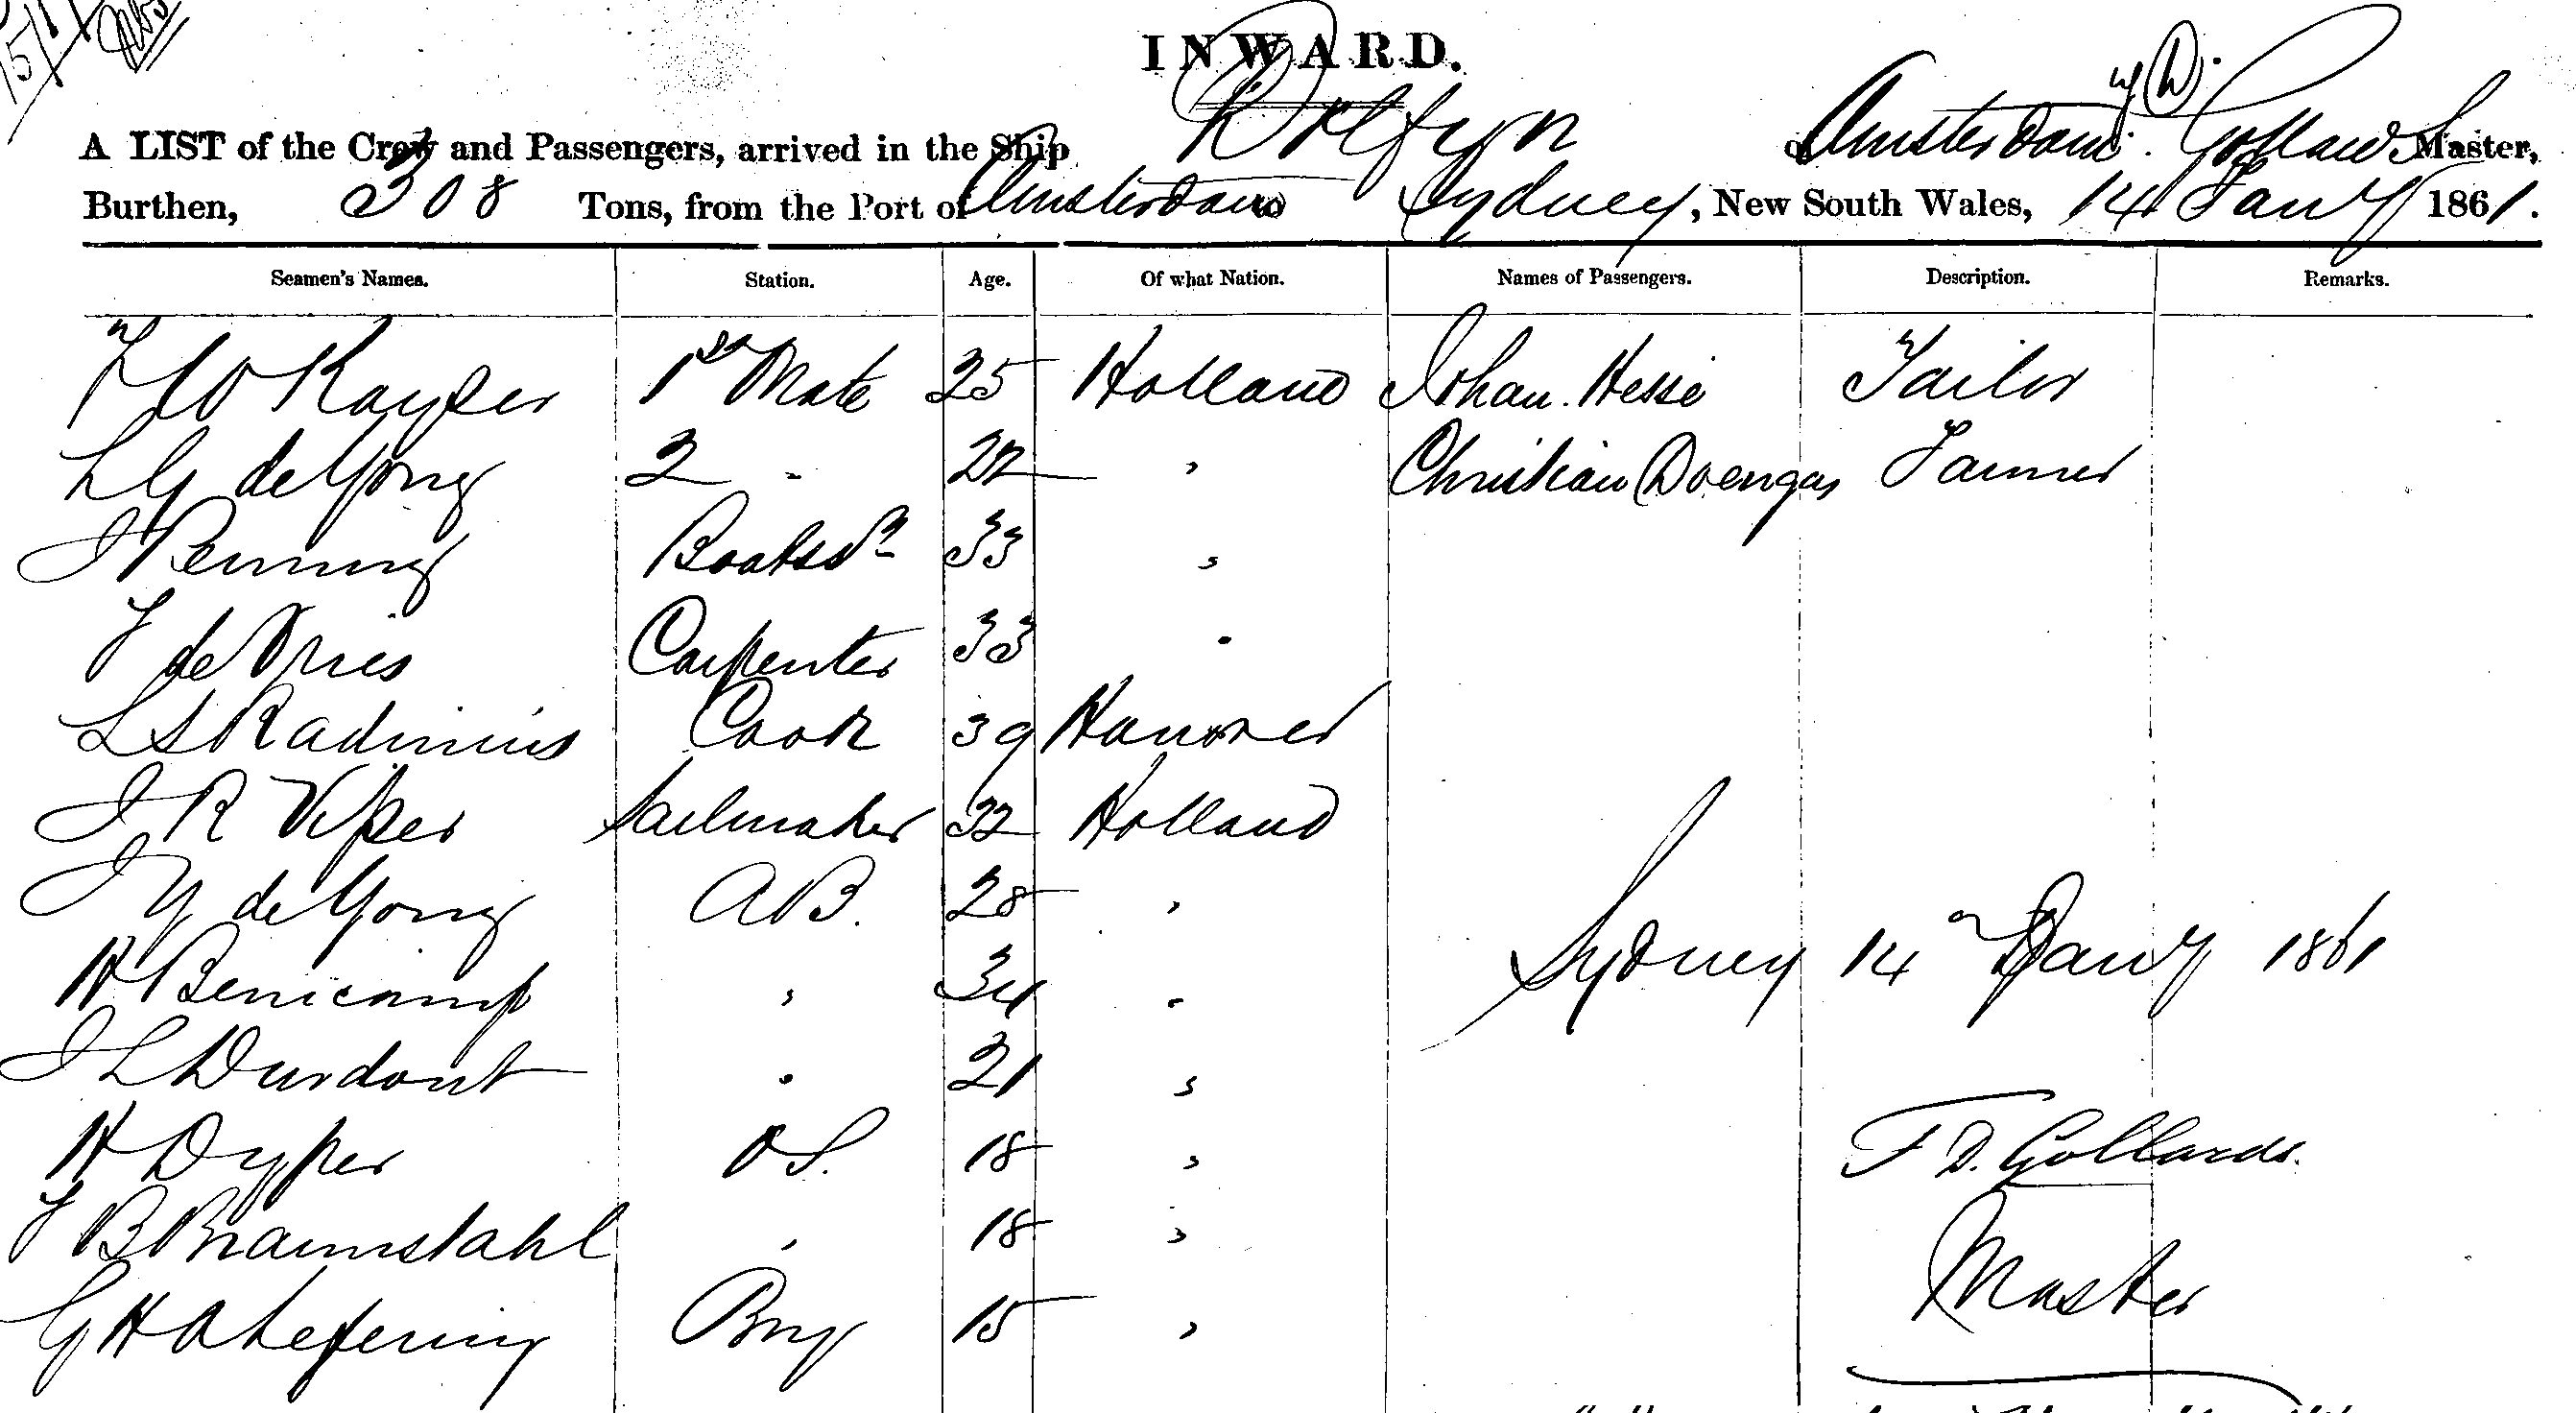 INWARD.
A LIST of the Crew and Passengers, arrived in the Ship Dolfyn of Amsterdam. Gollards Master,
Burthen, 308 Tons, from the Port of Amsterdam to Sydney, New South Wales, 14 Jany 1861.
Seamen's Names. Station. Age. Of what Nation. Names of Passengers. Description. Remarks.
Kayser 1st Mate 25 Holland Johan Hesse Tailor
L G de Yong 2 " 22 " Christian Doengas
J Penning Boatsn 33 "
de Vries Carpenter 33 "
L S Radimius Cook 39 Hanover
J R Visser Sailmaker 32 Holland
J Y de Yong AB. 28 "
H Benicamp " 34 "
Sydney 14 Jany 1861
J L Durdont " 21 "
H Dyper OS. 18 "
F D. Gollards.
B Braamstahl " 18 "
Master
G H Boy 15 "